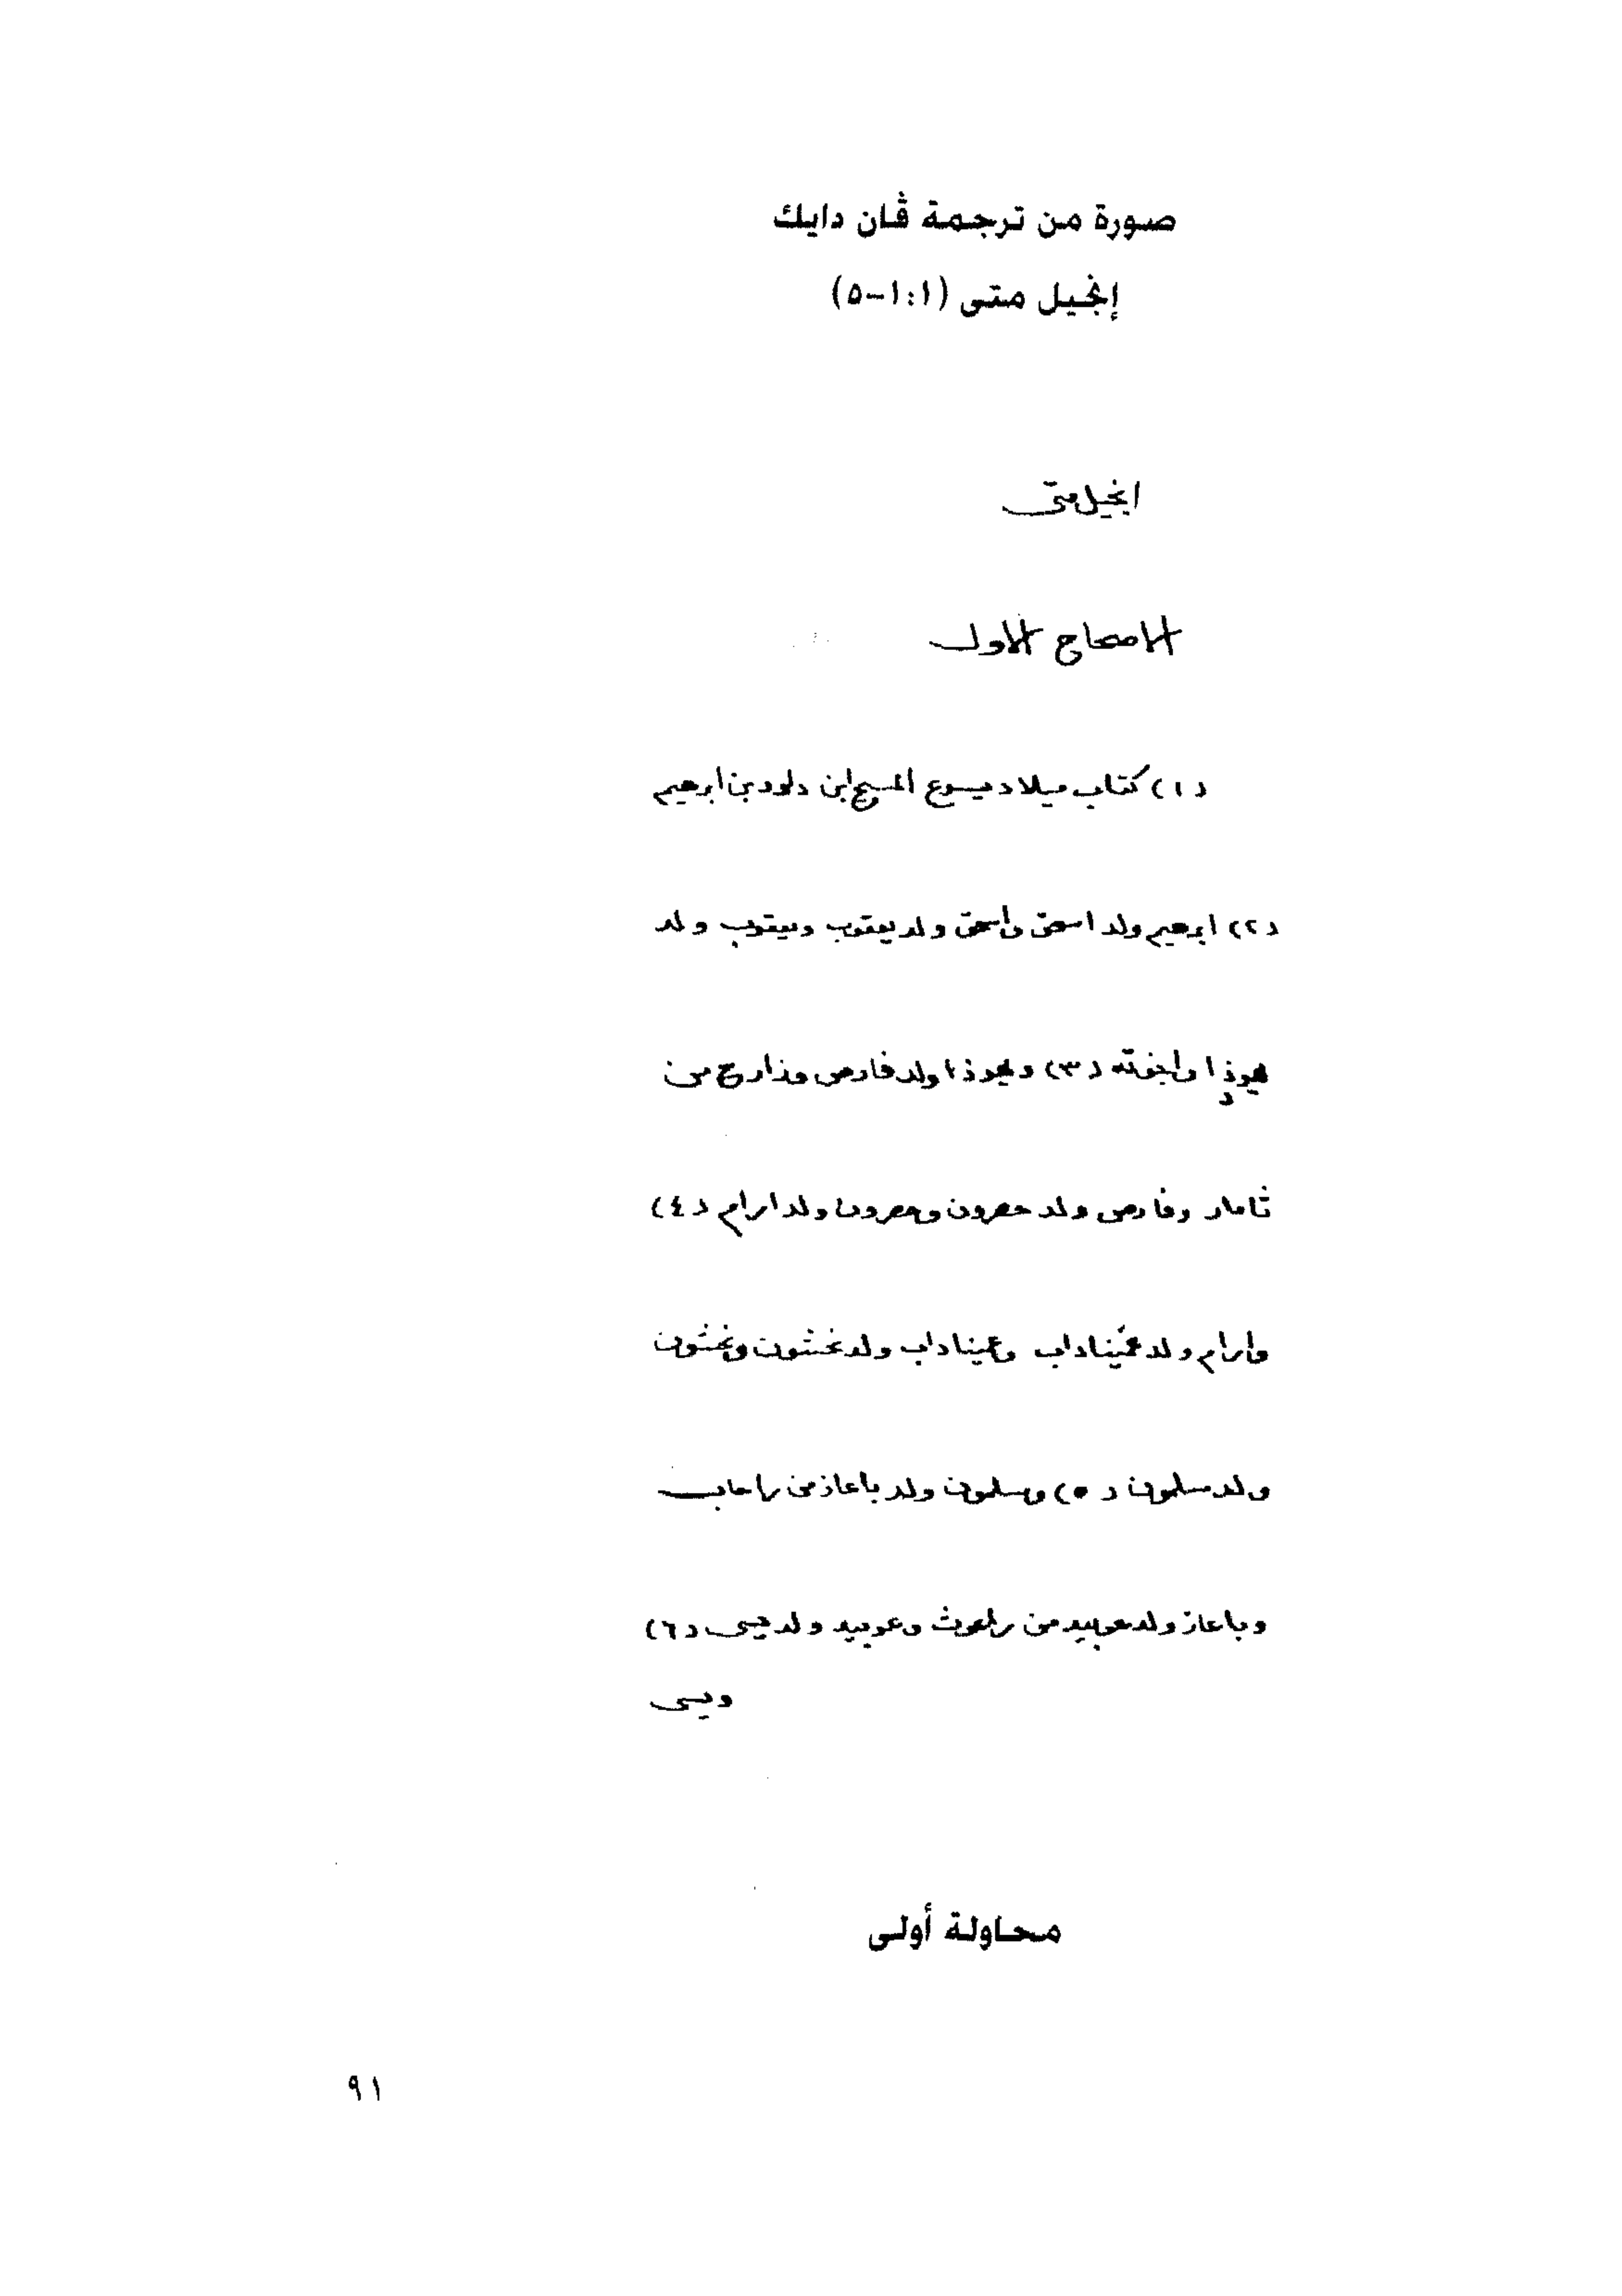 صورة من ترجمة ڤان دايك
إنجيل متى (١:١-٥)
انجيل متى
الاصحاح الاول
(١) كتاب ميلاد يسوع المسيح ابن داود بن ابرهيم
(٢) ابرهيم ولد اسحق واسحق ولد يعقوب ويعقوب ولد
يهوذا واخوته (٣) ويهوذا ولد فارص وزارح من
ثامار وفارص ولد حصرون وحصرون ولد ارام (٤)
وارام ولد عميناداب وعميناداب ولد نحشون ونحشون
ولد سلمون (٥) وسلمون ولد باعاز من راحاب
وباعاز ولد عوبيد من راعوث وعوبيد ولد يسى (٦)
ويسى
محاولة أولى
٩١